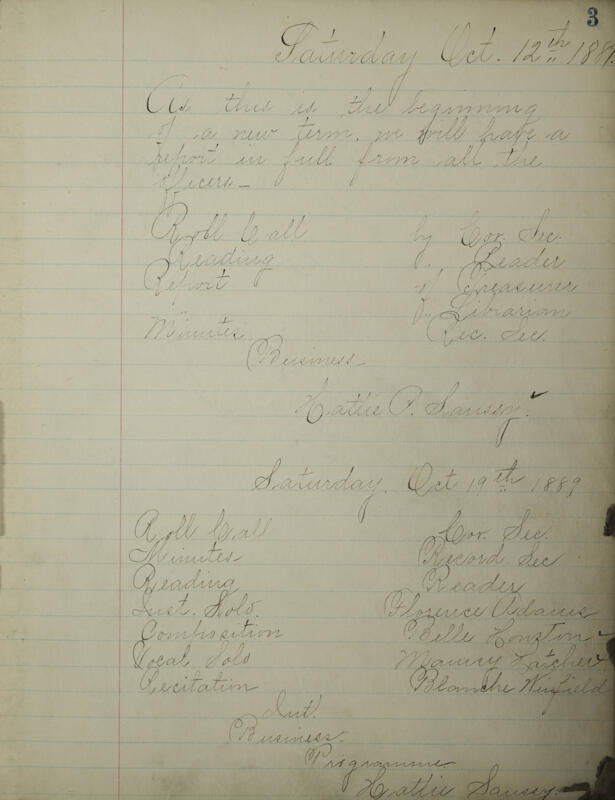 3
Saturday Oct. 12th 1889.
As this is the beginning
of a new term, we will have a
report in full from all the
officers—
Roll Call by Cor. Sec.
Reading " Reader
Report of Treasurer
" Librarian
Minutes Rec. Sec.
Business—
Hattie P. Saussy.
Saturday, Oct 19th 1889
Roll Call Cor. Sec.
Minutes— Record. Sec
Reading Reader
Inst. Solo. Florence Adams
Composition Belle Houston
Vocal Solo Hatcher
Recitation Blanche Winfield
Int.
Business.
Programme
Hattie Saussy—